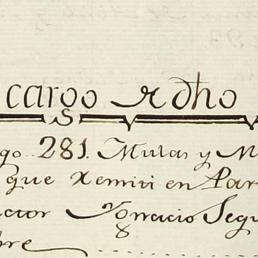 cargo R dho
go 281. Mulas y M
que Remiti en Par
actor Ygnacio Segu
bre